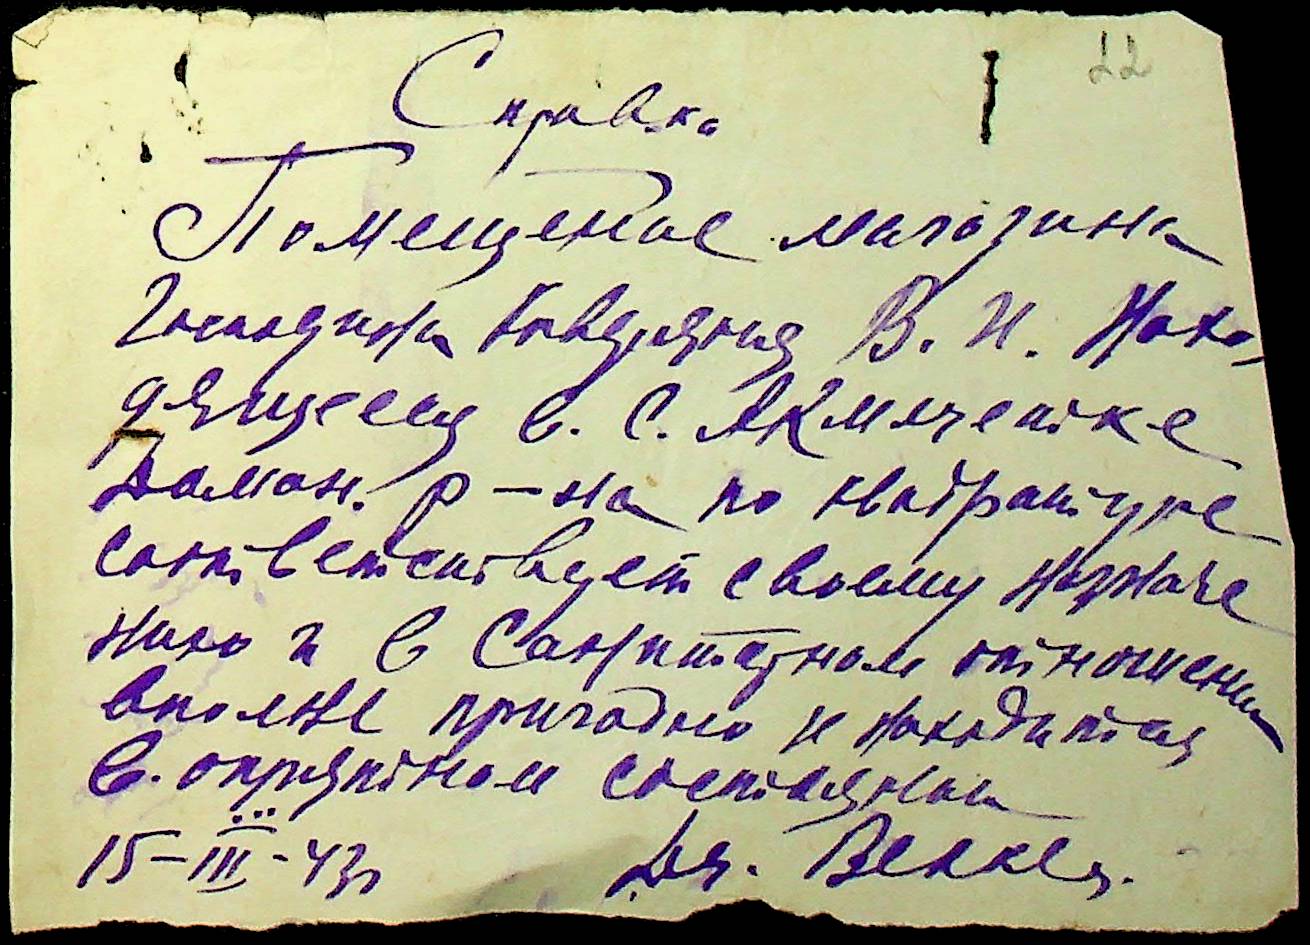 22
Справка
Помещение магазина
Господина В. И. Нахо-
дящееся в. с. Акмечетке
Доман. р-на по квадратуре
соответствует своему назначе
нию и в санитарном отношении
вполне пригодно и находится
в. опрятном состоянии
15-III-43г